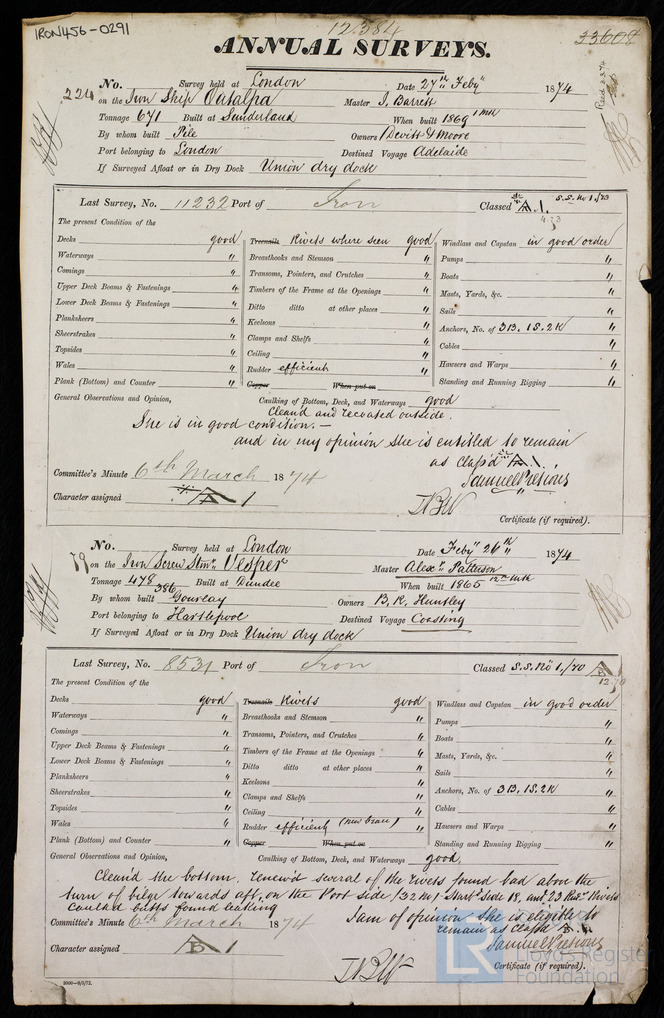 IRON456-0291
12,584
33608
ANNUAL SURVEYS.
No. 224 Survey held at London Date 27th Feby 1874
on the Iron Ship Catalpa Master J. Barrett
Tonnage 671 Built at Sunderland When built 1869 1 mth
By whom built Pile Owners Devitt & Moore
Port belonging to London Destined Voyage Adelaide
If Surveyed Afloat or in Dry Dock Union dry dock
Last Survey, No. 11232 Port of Iron Classed A.1. S.S. No 1./73
4.73
The present Condition of the
Decks good Treenails Rivets where seen good Windlass and Capstan in good order
Waterways " Breasthooks and Stemson " Pumps "
Comings " Transoms, Pointers, and Crutches " Boats "
Upper Deck Beams & Fastenings " Timbers of the Frame at the Openings " Masts, Yards, &c. "
Lower Deck Beams & Fastenings " Ditto ditto at other places " Sails "
Planksheers " Keelsons " Anchors, No. of 3B. 1S. 2K "
Sheerstrakes " Clamps and Shelfs " Cables "
Topsides " Ceiling " Hawsers and Warps "
Wales " Rudder efficient Standing and Running Rigging "
Plank (Bottom) and Counter " Copper When put on
General Observations and Opinion, Caulking of Bottom, Deck, and Waterways good
Cleaned and recoated outside.
She is in good condition. —
and in my opinion she is entitled to remain
as class'd A.1.
Committee's Minute 6th March 1874 Samuel Pretious
Character assigned A 1
Certificate (if required).
No. 79 Survey held at London Date Feby 26th 1874
on the Iron Screw Stmr Vesper Master Alexr Patterson
Tonnage 478 386 Built at Dundee When built 1865 12th mth
By whom built Gourlay Owners B. R. Huntley
Port belonging to Hartlepool Destined Voyage Coasting
If Surveyed Afloat or in Dry Dock Union dry dock
Last Survey, No. 8531 Port of Iron Classed S.S. No 1./70 A
12.70
The present Condition of the
Decks good Treenails Rivets good Windlass and Capstan in good order
Waterways " Breasthooks and Stemson " Pumps "
Comings " Transoms, Pointers, and Crutches " Boats "
Upper Deck Beams & Fastenings " Timbers of the Frame at the Openings " Masts, Yards, &c. "
Lower Deck Beams & Fastenings " Ditto ditto at other places " Sails "
Planksheers " Keelsons " Anchors, No. of 3B. 1S. 2K "
Sheerstrakes " Clamps and Shelfs " Cables "
Topsides " Ceiling " Hawsers and Warps "
Wales " Rudder efficient (new brace) Standing and Running Rigging "
Plank (Bottom) and Counter " Copper When put on
General Observations and Opinion, Caulking of Bottom, Deck, and Waterways good
Clean'd the bottom, renew'd several of the rivets found bad above the
turn of bilge towards aft, on the Port side, 32 No, Starbd Side 18, and 23 Rivets
Caulkd butts found leaking I am of opinion she is eligible to
Committee's Minute 6th March 1874 remain as class'd
Samuel Pretious
Character assigned B 1
Certificate (if required).
2000—9/2/72.
LR Lloyd's Register Foundation